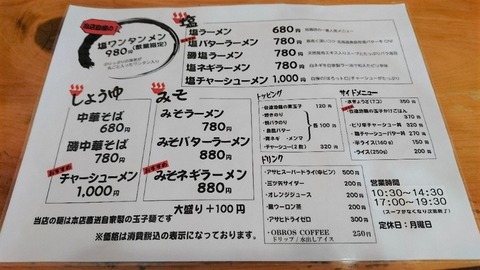 塩ワンタンメン
980円(数量限定)
塩
塩ラーメン 680円
塩バターラーメン 780円
磯塩ラーメン 780円
塩ネギラーメン 780円
塩チャーシューメン 1,000円
しょうゆ
中華そば
680円
磯中華そば
780円
おすすめ
チャーシューメン
1,000円
みそ
みそラーメン
780円
みそバターラーメン
880円
おすすめ
みそネギラーメン
880円
大盛り+100円
トッピング
・自家製の煮玉子 120円
・岩のり
・青ネギ ・メンマ
各100円
・チャーシュー(2枚) 320円
サイドメニュー
・水ぎょうざ(7コ) 350円
・ライス(250g) 200円
ドリンク
・アサヒスーパードライ(中ビン) 500円
・三ツ矢サイダー 200円
・オレンジジュース 200円
・黒ウーロン茶 200円
・アサヒドライゼロ 300円
・OBROS COFFEE 250円
ドリップ/水出しアイス
営業時間
10:30~14:30
17:00~19:30
(スープがなくなり次第終了)
定休日:月曜日
当店の麺は本店直送自家製の玉子麺です
※価格は消費税込の表示になっております。